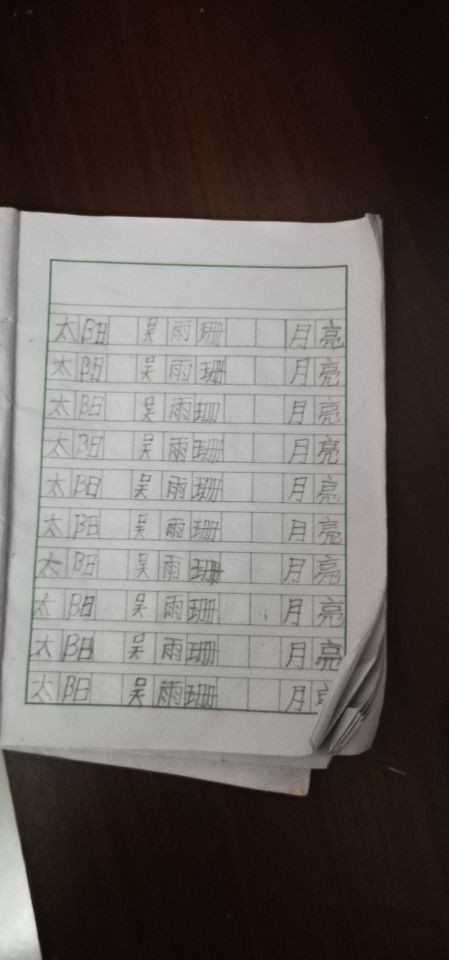 太阳 吴雨珊 月亮
太阳 吴雨珊 月亮
太阳 吴雨珊 月亮
太阳 吴雨珊 月亮
太阳 吴雨珊 月亮
太阳 吴雨珊 月亮
太阳 吴雨珊 月亮
太阳 吴雨珊 月亮
太阳 吴雨珊 月亮
太阳 吴雨珊 月